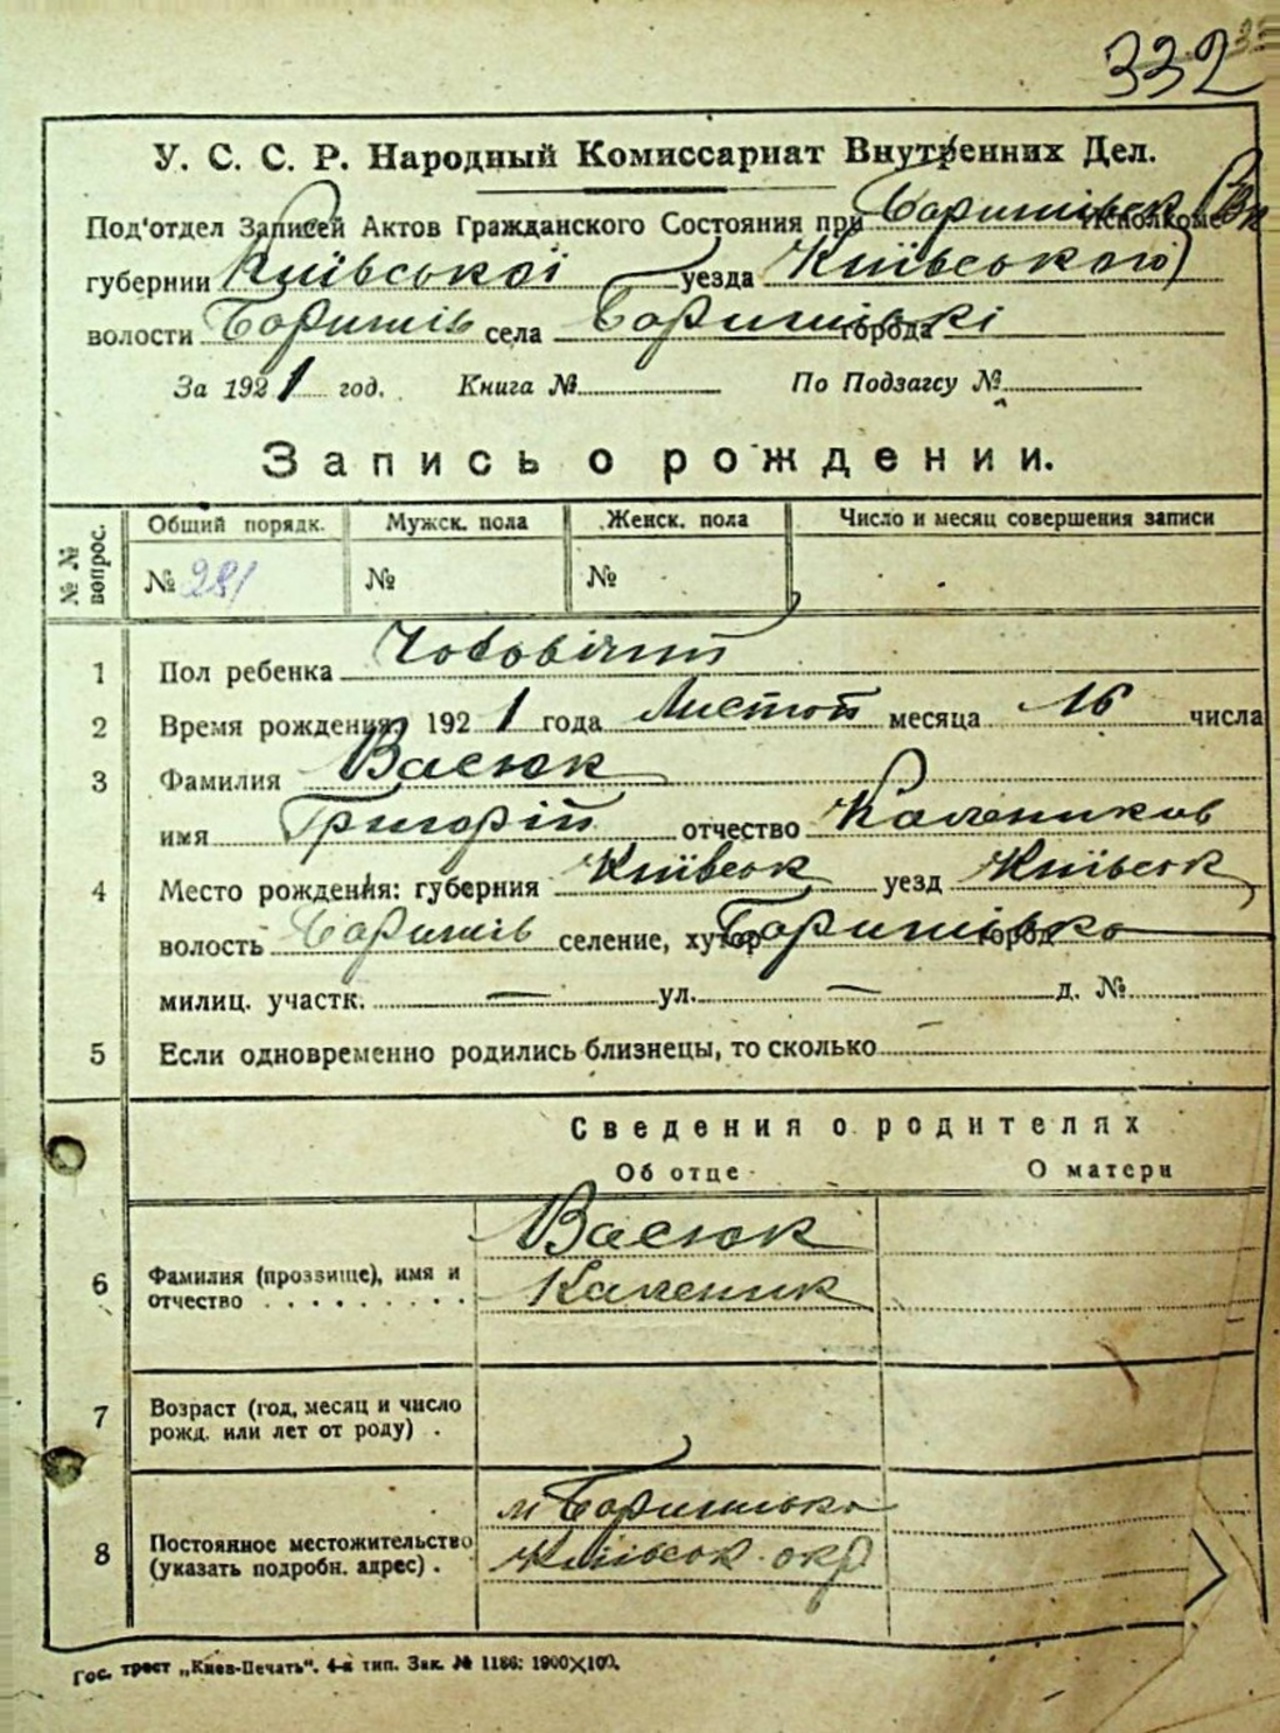 332
У. С. С. Р. Народный Комиссариат Внутренних Дел.
Под'отдел Записей Актов Гражданского Состояния при Баришівск Исполкоме
губернии Київської уезда Київського
волости Баришів села Баришівкі города
За 1921 год. Книга № По Подзагсу №
Запись о рождении.
№ № вопрос. Общий порядк. Мужск. пола Женск. пола Число и месяц совершения записи
№ 281 № №
1 Пол ребенка Чоловічий
2 Время рождения: 1921 года Листоп месяца 16 числа
3 Фамилия Васюк
имя Григорій отчество Калеников
4 Место рождения: губерния Київськ уезд Київськ
волость Баришів селение, хутор Баришівка город
милиц. участк. — ул. — д. №
5 Если одновременно родились близнецы, то сколько
Сведения о родителях
Об отце О матери
Васюк
6 Фамилия (прозвище), имя и Каленик
отчество . . . . . . . . .
7 Возраст (год, месяц и число
рожд. или лет от роду) .
м Баришівка
8 Постоянное местожительство Київськ окр
(указать подробн. адрес) .
Гос. трест „Киев-Печать". 4-я тип. Зак. № 1186: 1900×100.